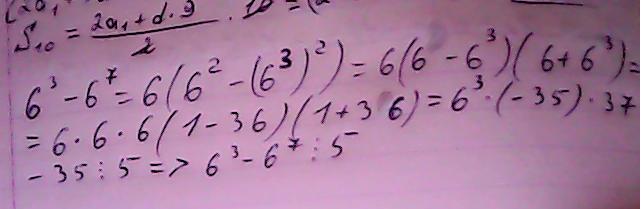 S₁₀ = (2a₁ + d · 9)/2 · 10 = (2
6³ - 6⁷ = 6(6² - (6³)²) = 6(6 - 6³)(6 + 6³) =
= 6 · 6 · 6(1 - 36)(1 + 36) = 6³ · (-35) · 37
-35 ⋮ 5 => 6³ - 6⁷ ⋮ 5